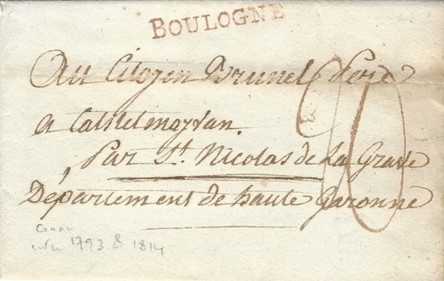 BOULOGNE
Au Citoyen Brunel Pere
a Castelmayran.
Par St. Nicolas de La Grave
Departement de haute Garonne
1793 & 1814